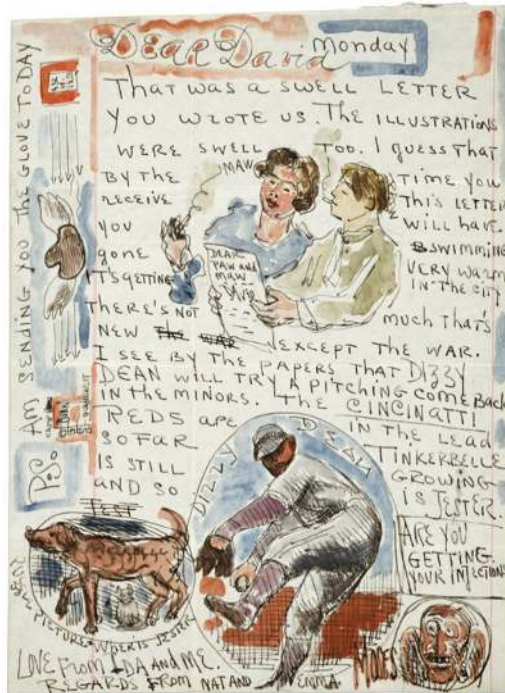 Dear David Monday
THAT WAS A SWELL LETTER
YOU WROTE US. THE ILLUSTRATIONS
WERE SWELL TOO. I GUESS THAT
BY THE TIME YOU
RECEIVE THIS LETTER
YOU WILL HAVE
GONE SWIMMING
IT'S GETTING VERY WARM
IN THE CITY
THERE'S NOT much THAT'S
NEW THE WAR EXCEPT THE WAR.
I SEE BY THE PAPERS THAT DIZZY
DEAN WILL TRY A PITCHING COME BACK
IN THE MINORS. THE CINCINATTI
REDS ARE IN THE LEAD
SO FAR TINKERBELLE
IS STILL GROWING
AND SO IS JESTER.
JEST
MAW
DEAR
PAW AND
MAW
DIZZY DEAN
ARE YOU
GETTING
YOUR INJECTIONS
MOSES
WHERE IS JESTER
LOVE FROM IDA AND ME.
REGARDS FROM NAT AND EMMA
P.S. AM SENDING YOU THE GLOVE TODAY